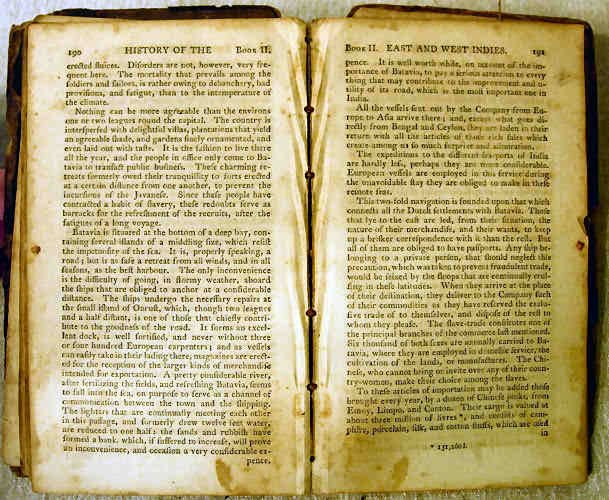 190 HISTORY OF THE Book II.
erected sluices. Disorders are not, however, very fre-
quent here. The mortality that prevails among the
soldiers and sailors, is rather owing to debauchery, bad
provisions, and fatigue, than to the intemperature of
the climate.
Nothing can be more agreeable than the environs
one or two leagues round the capital. The country is
interspersed with delightful villas, plantations that yield
an agreeable shade, and gardens finely ornamented, and
even laid out with taste. It is the fashion to live there
all the year, and the people in office only come to Ba-
tavia to transact public business. These charming re-
treats formerly owed their tranquillity to forts erected
at a certain distance from one another, to prevent the
incursions of the Javanese. Since these people have
contracted a habit of slavery, these redoubts serve as
barracks for the refreshment of the recruits, after the
fatigues of a long voyage.
Batavia is situated at the bottom of a deep bay, con-
taining several islands of a middling size, which resist
the impetuosity of the sea. It is, properly speaking, a
road; but it is as safe a retreat from all winds, and in all
seasons, as the best harbour. The only inconvenience
is the difficulty of going, in stormy weather, aboard
the ships that are obliged to anchor at a considerable
distance. The ships undergo the necessary repairs at
the small island of Onrust, which, though two leagues
and a half distant, is one of those that chiefly contri-
bute to the goodness of the road. It forms an excel-
lent dock, is well fortified, and never without three
or four hundred European carpenters; and as vessels
can easily take in their lading there, magazines are erect-
ed for the reception of the larger kinds of merchandise
intended for exportation. A pretty considerable river,
after fertilizing the fields, and refreshing Batavia, seems
to fall into the sea, on purpose to serve as a channel of
communication between the town and the shipping.
The lighters that are continually meeting each other
in this passage, and formerly drew twelve feet water,
are reduced to one half: the sands and rubbish have
formed a bank which, if suffered to increase, will prove
an inconvenience, and occasion a very considerable ex-
pence.
Book II. EAST AND WEST INDIES. 191
pence. It is well worth while, on account of the im-
portance of Batavia, to pay a serious attention to every
thing that may contribute to the improvement and u-
tility of its road, which is the most important one in
India.
All the vessels sent out by the Company from Eu-
rope to Asia arrive there; and, except what goes di-
rectly from Bengal and Ceylon, they are laden in their
return with all the articles of those rich sales which
create among us so much surprise and admiration.
The expeditions to the different sea-ports of India
are hardly less, perhaps they are more considerable.
European vessels are employed in this service during
the unavoidable stay they are obliged to make in these
remote seas.
This two-fold navigation is founded upon that which
connects all the Dutch settlements with Batavia. Those
that lye to the east are led, from their situation, the
nature of their merchandise, and their wants, to keep
up a brisker correspondence with it than the rest. But
all of them are obliged to have passports. Any ship be-
longing to a private person, that should neglect this
precaution, which was taken to prevent fraudulent trade,
would be seized by the sloops that are continually crui-
sing in these latitudes. When they arrive at the place
of their destination, they deliver to the Company such
of their commodities as they have reserved the exclu-
sive trade of to themselves, and dispose of the rest to
whom they please. The slave-trade constitutes one of
the principal branches of the commerce last mentioned.
Six thousand of both sexes are annually carried to Ba-
tavia, where they are employed in domestic service, the
cultivation of the lands, or manufactures. The Chi-
nese, who cannot bring or invite over any of their coun-
try-women, make their choice among the slaves.
To these articles of importation may be added those
brought every year, by a dozen of Chinese junks, from
Emoy, Limpo, and Canton. Their cargo is valued at
about three million of livres *, and consists of cam-
phire, porcelain, silk, and cotton stuffs, which are used
in
* 131,250 l.